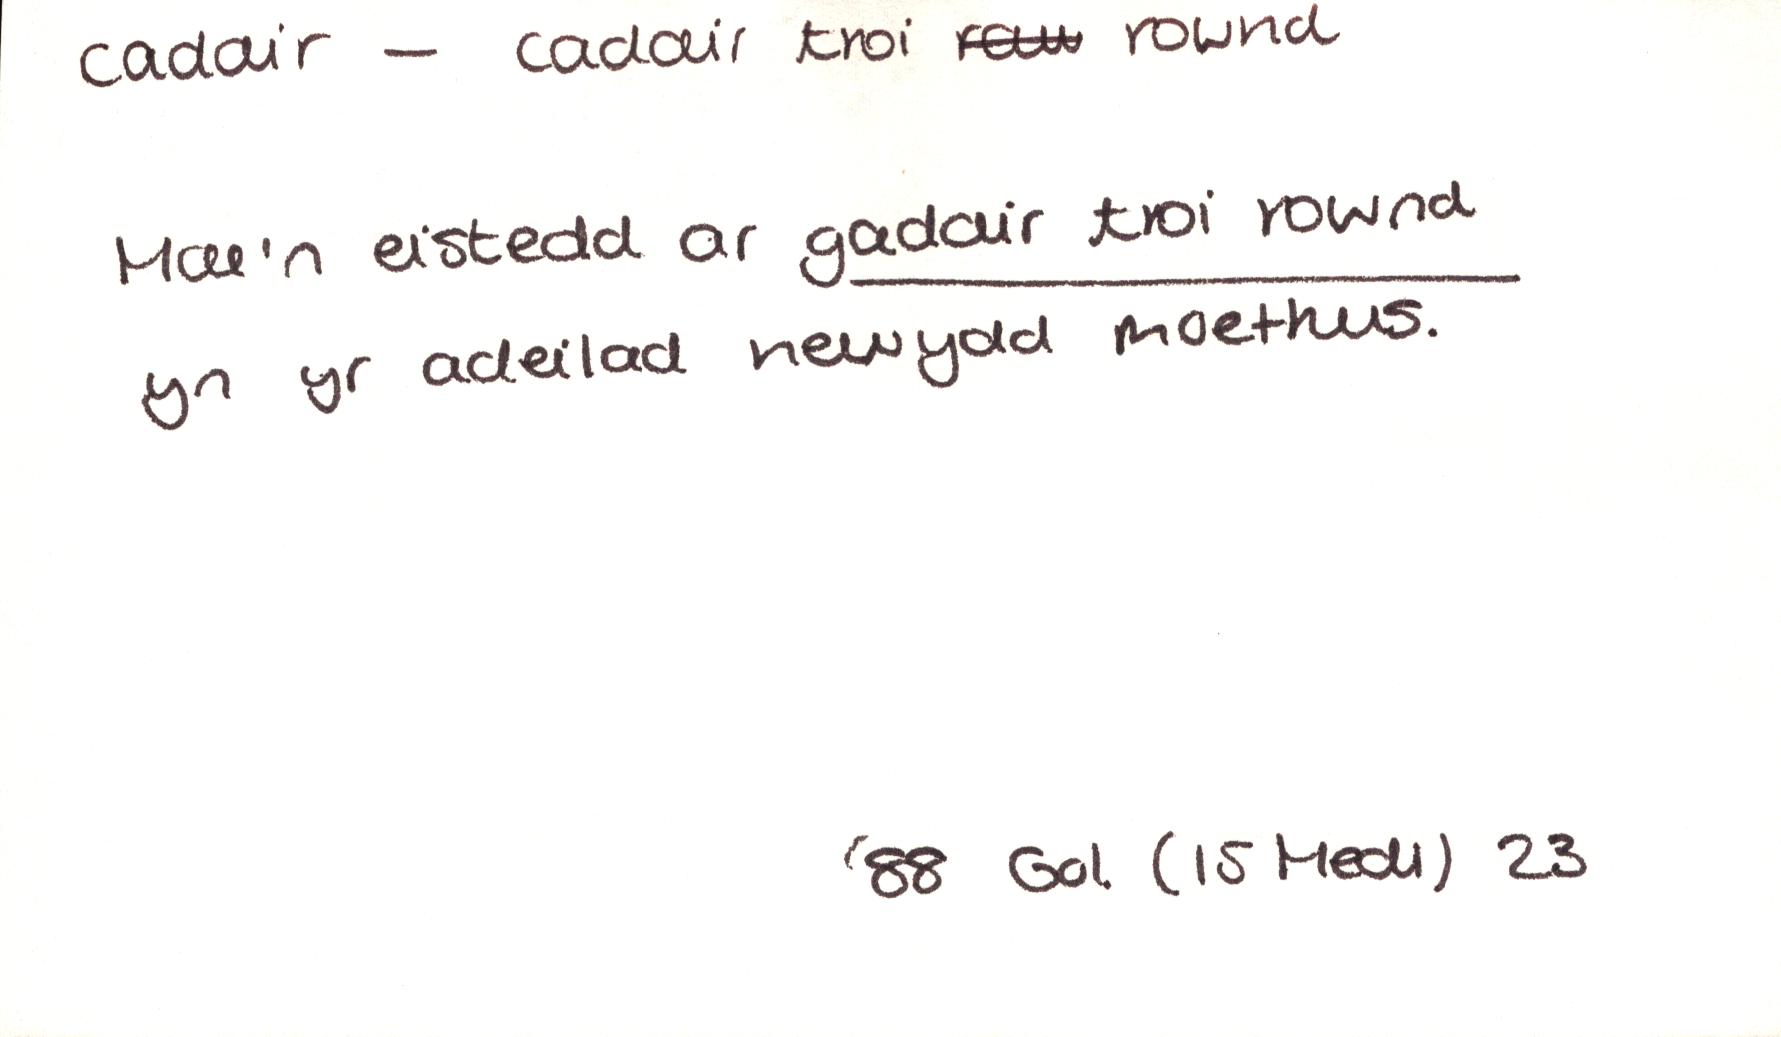 cadair – cadair troi rownd
Mae'n eistedd ar gadair troi rownd
yn yr adeilad newydd moethus.
'88 Gol. (15 Medi) 23